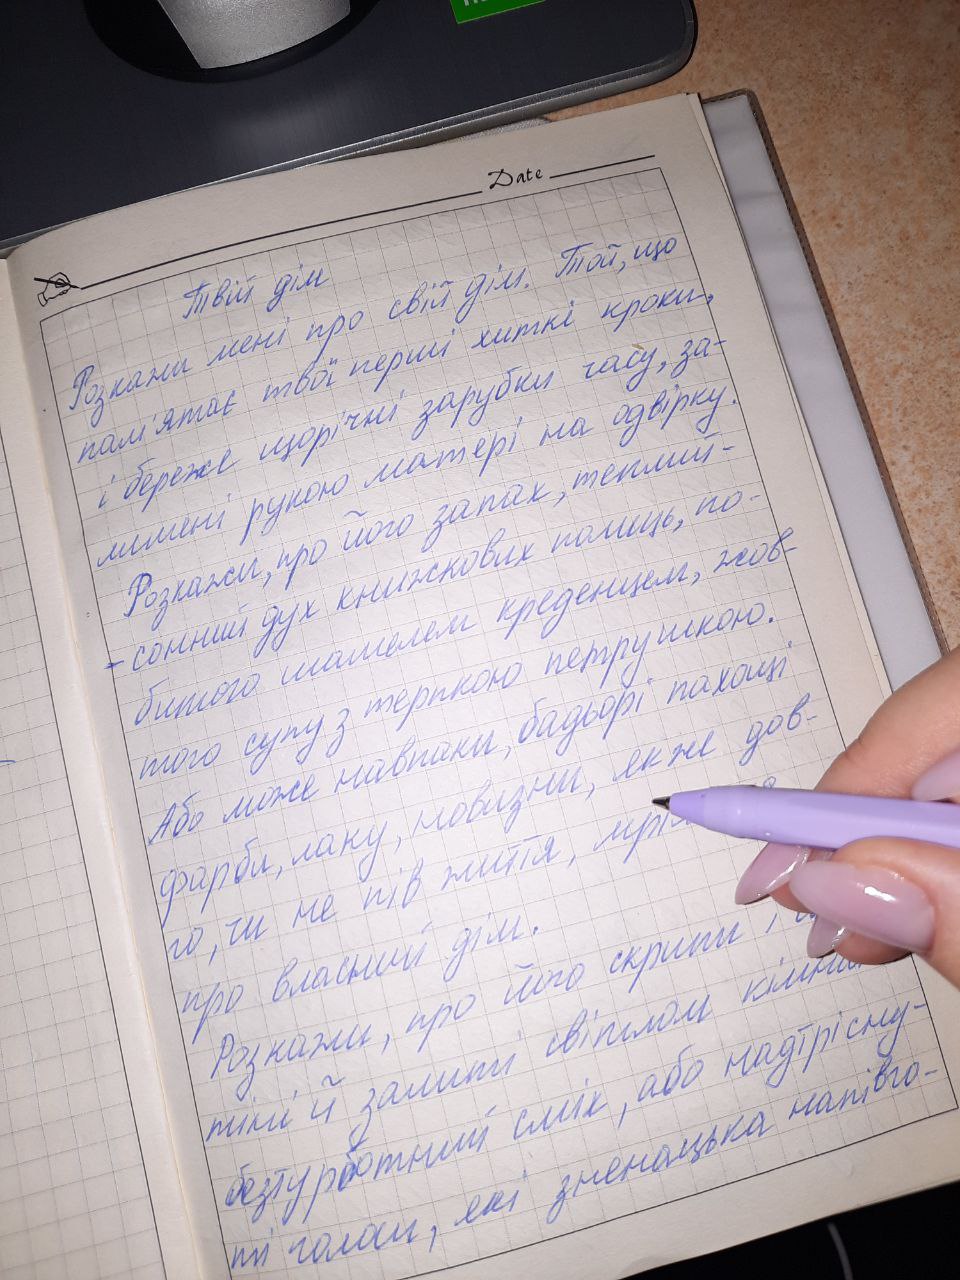 Date
Твій дім
Розкажи мені про свій дім. Той, що
пам'ятає твої перші хиткі кроки,
і береже щорічні зарубки часу, за-
лишені рукою матері на одвірку.
Розкажи, про його запах, теплий-
-сонний дух книжкових полиць, по-
битого шашелем креденцем, жов-
того супу з терпкою петрушкою.
Або може навпаки, бадьорі пахощі
фарби, лаку, новизни, як же дов-
го, чи не пів життя,
про власний дім.
Розкажи, про його скрипи і
тіні й залиті світлом
безтурботний сміх, або надтрісну-
ті голоси, які зненацька напівго-